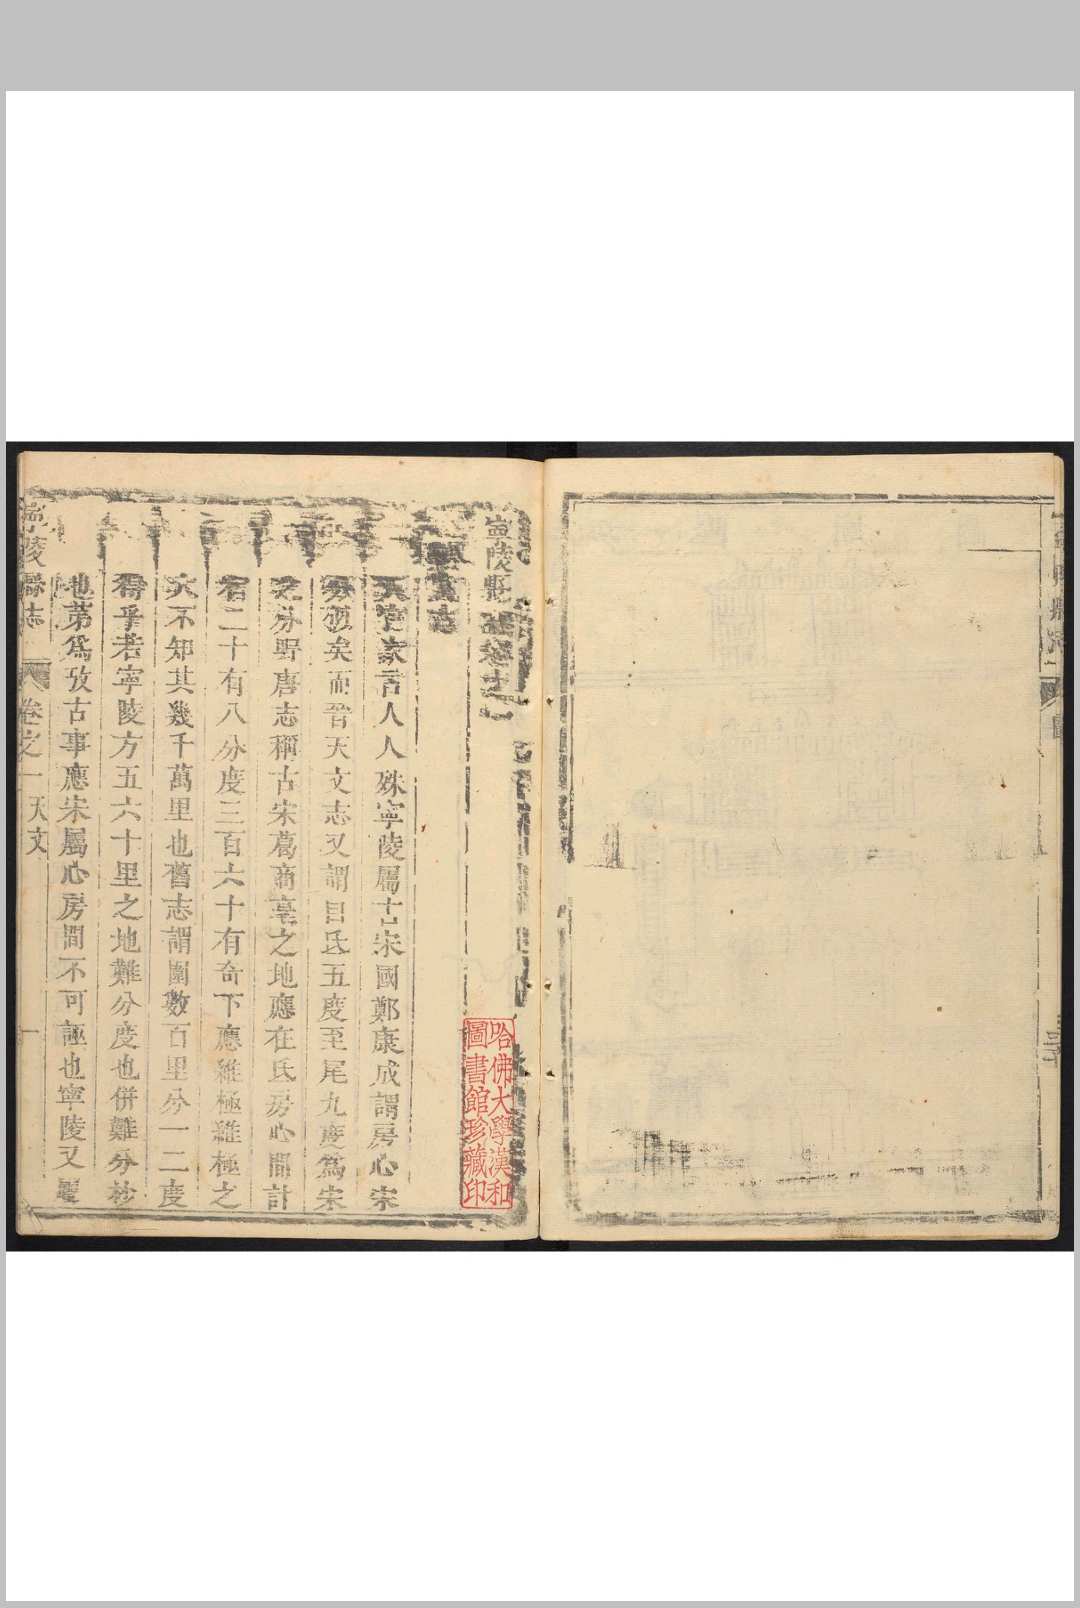 寧陵縣志卷之一
天文志
天官家言人人殊寧陵屬古宋國鄭康成謂房心宋
分野矣而晉天文志又謂自氐五度至尾九度爲宋
之分野唐志稱古宋葛商亳之地應在氐房心間計
宿二十有八分度三百六十有奇下應維極維極之
大不知其幾千萬里也舊志謂圍數百里分一二度
得乎若寧陵方五六十里之地難分度也併難分秒
也第爲攷古事應宋屬心房間不可誣也寧陵又
寧陵縣志 卷之一 天文 一
哈佛大學漢和
圖書館珍藏印